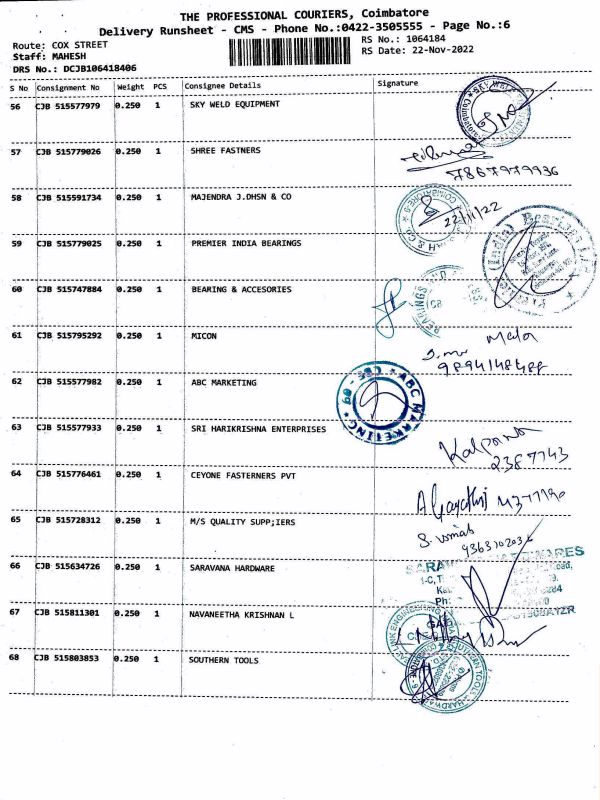 THE PROFESSIONAL COURIERS, Coimbatore
Delivery Runsheet - CMS - Phone No.:0422-3505555 - Page No.:6
Route: COX STREET
RS No.: 1064184
Staff: MAHESH
RS Date: 22-Nov-2022
DRS No.: DCJB106418406
S No Consignment No Weight PCS Consignee Details Signature
56 CJB 515577979 0.250 1 SKY WELD EQUIPMENT
57 CJB 515779026 0.250 1 SHREE FASTNERS
7867979936
58 CJB 515591734 0.250 1 MAJENDRA J.DHSN & CO
22/11/22
59 CJB 515779025 0.250 1 PREMIER INDIA BEARINGS
60 CJB 515747884 0.250 1 BEARING & ACCESORIES
61 CJB 515795292 0.250 1 MICON
9894148488
62 CJB 515577982 0.250 1 ABC MARKETING
ABC MARKETING
CBE - 09
63 CJB 515577933 0.250 1 SRI HARIKRISHNA ENTERPRISES
2387743
64 CJB 515776461 0.250 1 CEYONE FASTERNERS PVT
A Gayathri
65 CJB 515728312 0.250 1 M/S QUALITY SUPP;IERS
66 CJB 515634726 0.250 1 SARAVANA HARDWARE
67 CJB 515811301 0.250 1 NAVANEETHA KRISHNAN L
68 CJB 515803853 0.250 1 SOUTHERN TOOLS